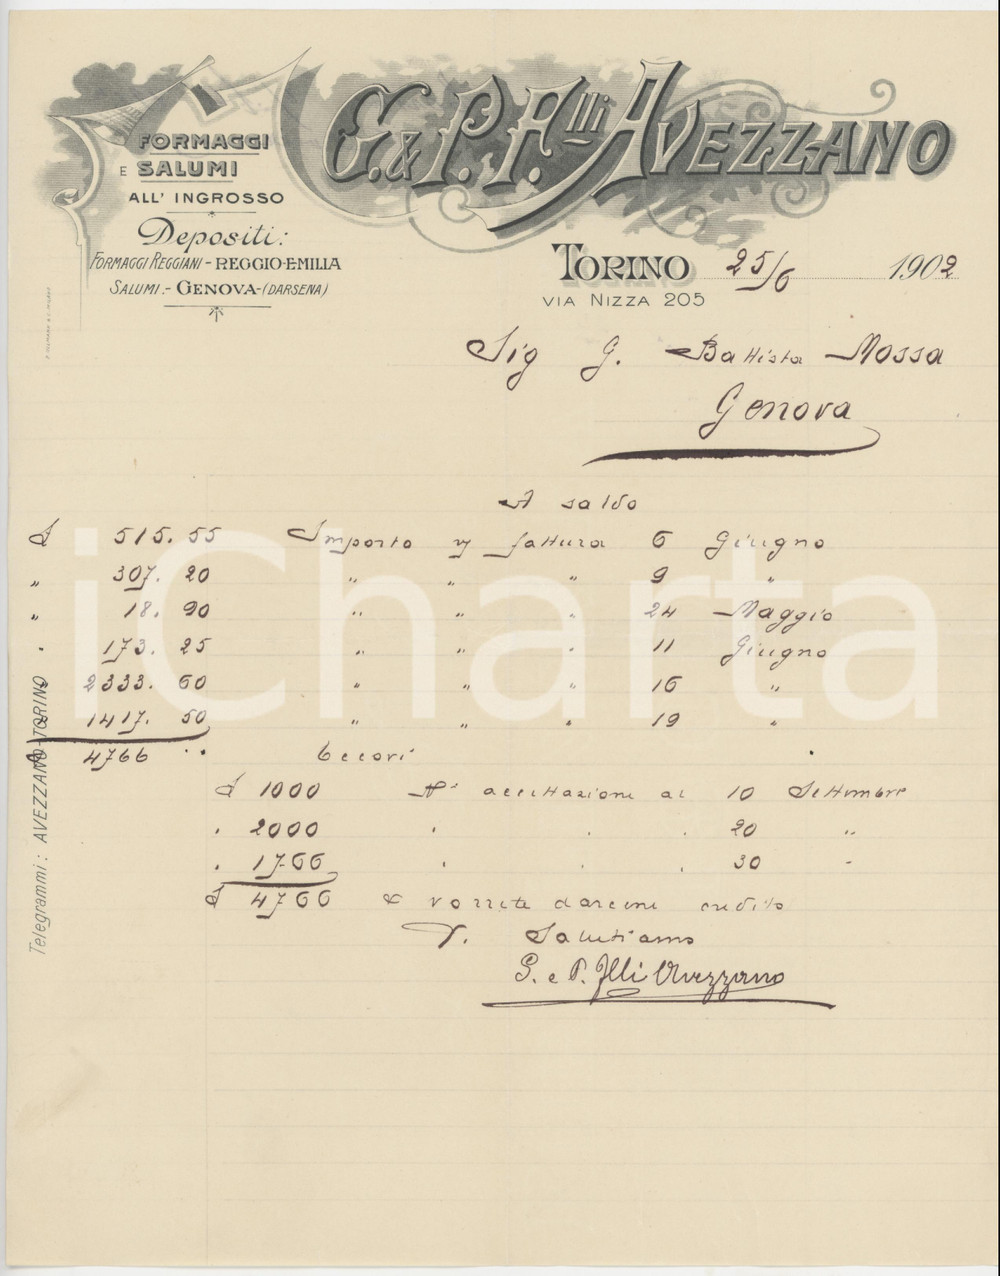 G. & P. F.lli AVEZZANO
FORMAGGI
E SALUMI
ALL' INGROSSO
Depositi:
FORMAGGI REGGIANI - REGGIO-EMILIA
SALUMI.- GENOVA-(DARSENA)
TORINO 25/6 1902
VIA NIZZA 205
Sig G. Battista Mossa
Genova
A saldo
£ 515. 55 Importo v/ fattura 6 Giugno
" 307. 20 " " " 9 "
" 18. 90 " " " 24 Maggio
" 173. 25 " " " 11 Giugno
" 2333. 60 " " " 16 "
" 1417. 50 " " " 19 "
£ 4766 " Eccovi
£ 1000 N/ accettazione al 10 Settembre
" 2000 " " " 20 "
" 1766 " " " 30 "
£ 4766 & vorrete darcene credito
V. Salutiamo
G. e P. Flli Avezzano
Telegrammi: AVEZZANO-TORINO
iCharta